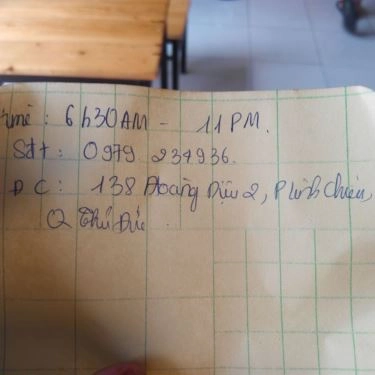 Time : 6h30AM - 11PM.
Sđt : 0979 234936.
ĐC : 138 Hoàng Diệu 2, P Linh Chiểu,
Q Thủ Đức